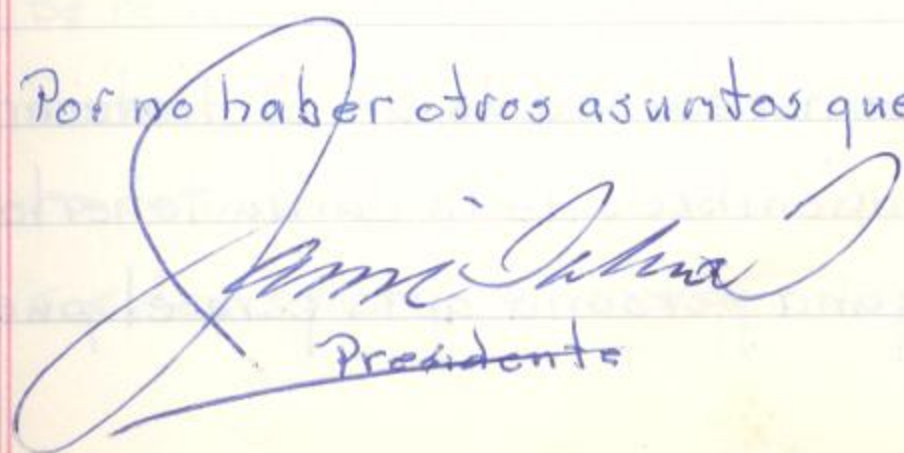 Por no haber otros asuntos que
Presidente